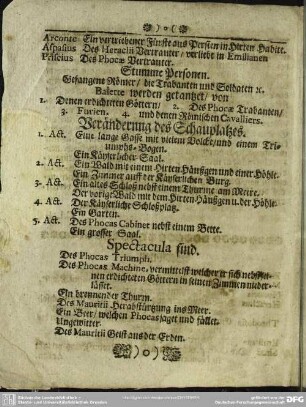 )o(
Arconte Ein vertriebener Fürste aus Persien in Hirten Habite.
Aspasius Des Heraclii Vertrauter/ verliebt in Emilianen
Priscius Des Phocæ Vertrauter.
Stumme Personen.
Gefangene Römer/ die Trabanten und Soldaten ꝛc.
Balette werden getantzet/ von
1. Denen erdichteten Göttern/ 2. Des Phocæ Trabanten/
3. Furien. 4. und denen Römischen Cavalliers.
Veränderung des Schauplatzes.
1. Act. Eine lange Gasse mit vielem Volcke/ und einem Triumphs-Bogen.
Ein Käyserlicher Saal.
2. Act. Ein Wald mit einem Hirten Häußgen und einer Höhle.
Ein Zimmer auff der Käyserlichen Burg.
3. Act. Ein altes Schloß nebst einem Thurme am Meere.
Der vorige Wald mit dem Hirten Häußgen u. der Höhle.
4. Act. Der Käyserliche Schloßplatz.
Ein Garten.
5. Act. Des Phocas Cabinet nebst einem Bette.
Ein grosser Saal.
Spectacula sind.
Des Phocas Triumph.
Des Phocas Machine, vermittelst welcher er sich nebst
nen erdichteten Göttern in seinen Zimmern nieder-
lässet.
Ein brennender Thurm.
Des Mauritii Herabstürtzung ins Meer.
Ein Beer/ welchen Phocas jaget und fället.
Ungewitter.
Des Mauritii Geist aus der Erden.
)o(